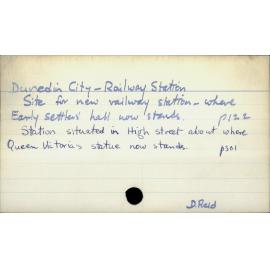 Dunedin City - Railway Station
Site for new railway station - where
Early settlers hall now stands. p122
Station situated in High street about where
Queen Victoria's statue now stands. p301
D. Reid